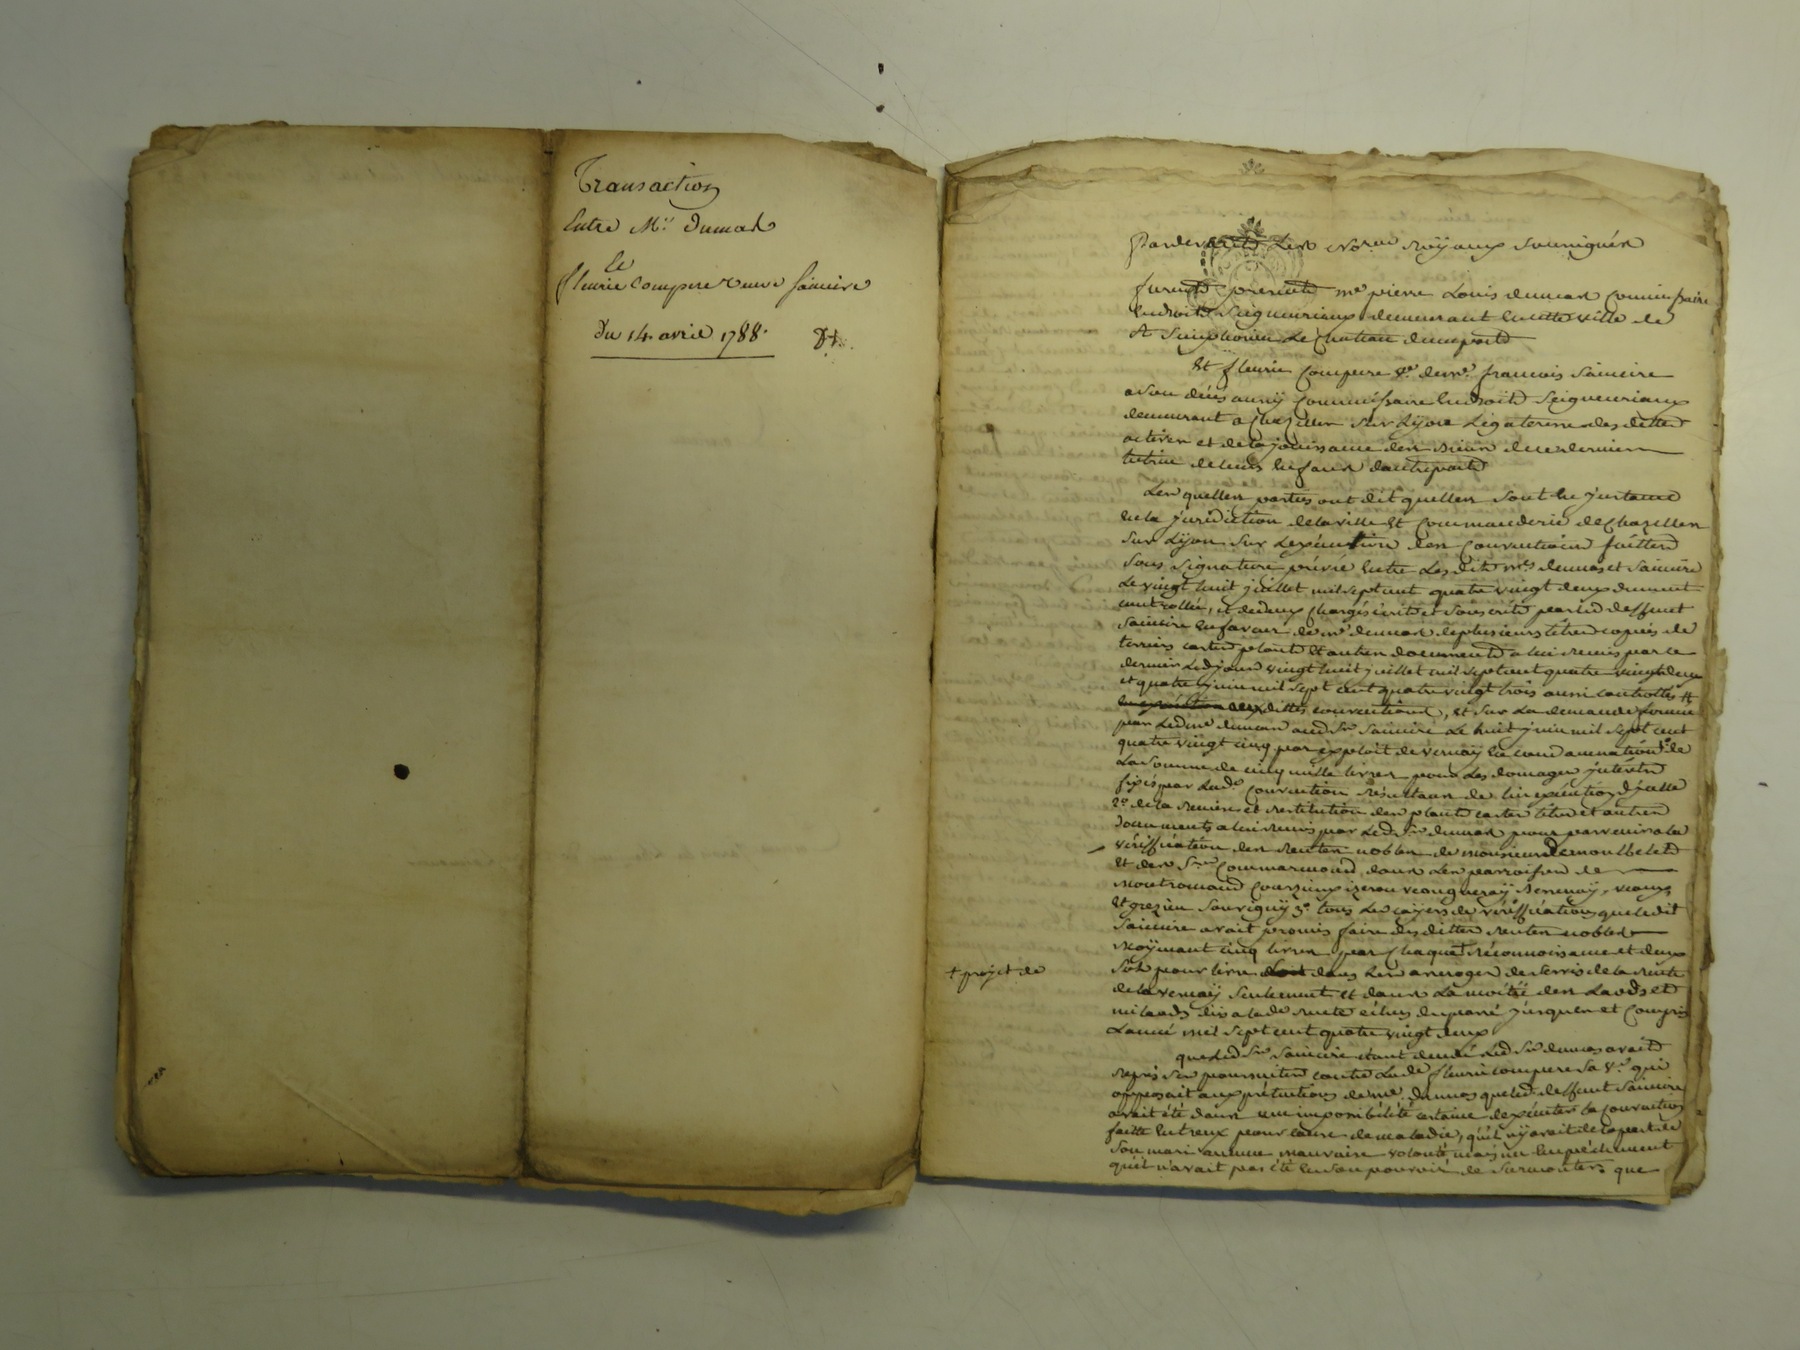 Transaction
Entre Mr. dumas
et
fleurie Compere veuve saincire
Du 14. avril 1788.
Pardevant Les Nores. royaux soussignés
furent présents me pierre Louis dumas Commissaire
en droits Seigneuriaux demeurant en cette ville de
St Simphorien Le Chateau d'une part
Et fleurie Compere ve. de me. francois Saincire
a son décès aussy Commissaire en droits Seigneuriaux
demeurant a Chazelles sur Lyon Légateresse des dettes
actives et de la jouissance des biens de ce dernier
tutrice de leurs enfans d'autre part
Lesquelles parties ont dit quelles sont en jnstance
en la jurisdiction de la ville et Commanderie de Chazelles
sur Lyon sur Lexécution des Conventions faittes
sous signature privée entre Les dits mes. dumas et saincire
Le vingt huit juillet mil sept cent quatre vingt deux duement
controllée, et de deux chargés écrits et souscrits par led. deffunt
saincire en faveur de me dumas de plusieurs titres copies de
terriers cartes plants et autres documents a lui remis par ce
dernier Lesd. jours vingt huit juillet mil sept cent quatre vingt deux
et quatre juin mil sept cent quatre vingt trois aussi controllés #
dittes conventions, et sur La demande formée
par Led. me dumas aud. Sr. saincire Le huit juin mil sept cent
quatre vingt cinq par exploit de vernay en condamnation 1o. de
La somme de cinq mille livres pour Les domages jntérêts
fixés par Lad. Convention résultans de linexécution dycelle
2o. de la remise et restitution des plants cartes titres et autres
documents a lui remis par Led. Sr. dumas pour parvenir a la
vérification des rentes nobles de monsieur de
et des Srs. dans Les parroisses de
montromand Courzieux
et grezieu Souvigny 3o. tous Les cayers de vérification que ledit
saincire avait promis faire des dittes rentes nobles
moÿnant cinq livres par Chaque reconnoissance et deux
+ projet de
sols pour livre dans Les arrerages de servis de la rente
de la vernaÿ seulement et dans La moitié des Laods et
milaods dûs a lad. rente échus du passé jusques et Compris
Lannée mil sept cent quatre vingt deux
que Led. Sr. saincire étant décédé Led. Sr. dumas avait
repris ses poursuites contre Lade. fleurie compere sa ve. qui
opposait aux prétentions de me. dumas que led. deffunt saincire
avait été dans une impossibilité certaine d'exécuter la convention
faitte entreux pour cause de maladie, qu'il n'y avait de la part de
son mari aucune mauvaise volonté mais un empêchement
qu'il n'avait pas été en son pouvoir de surmonter, que